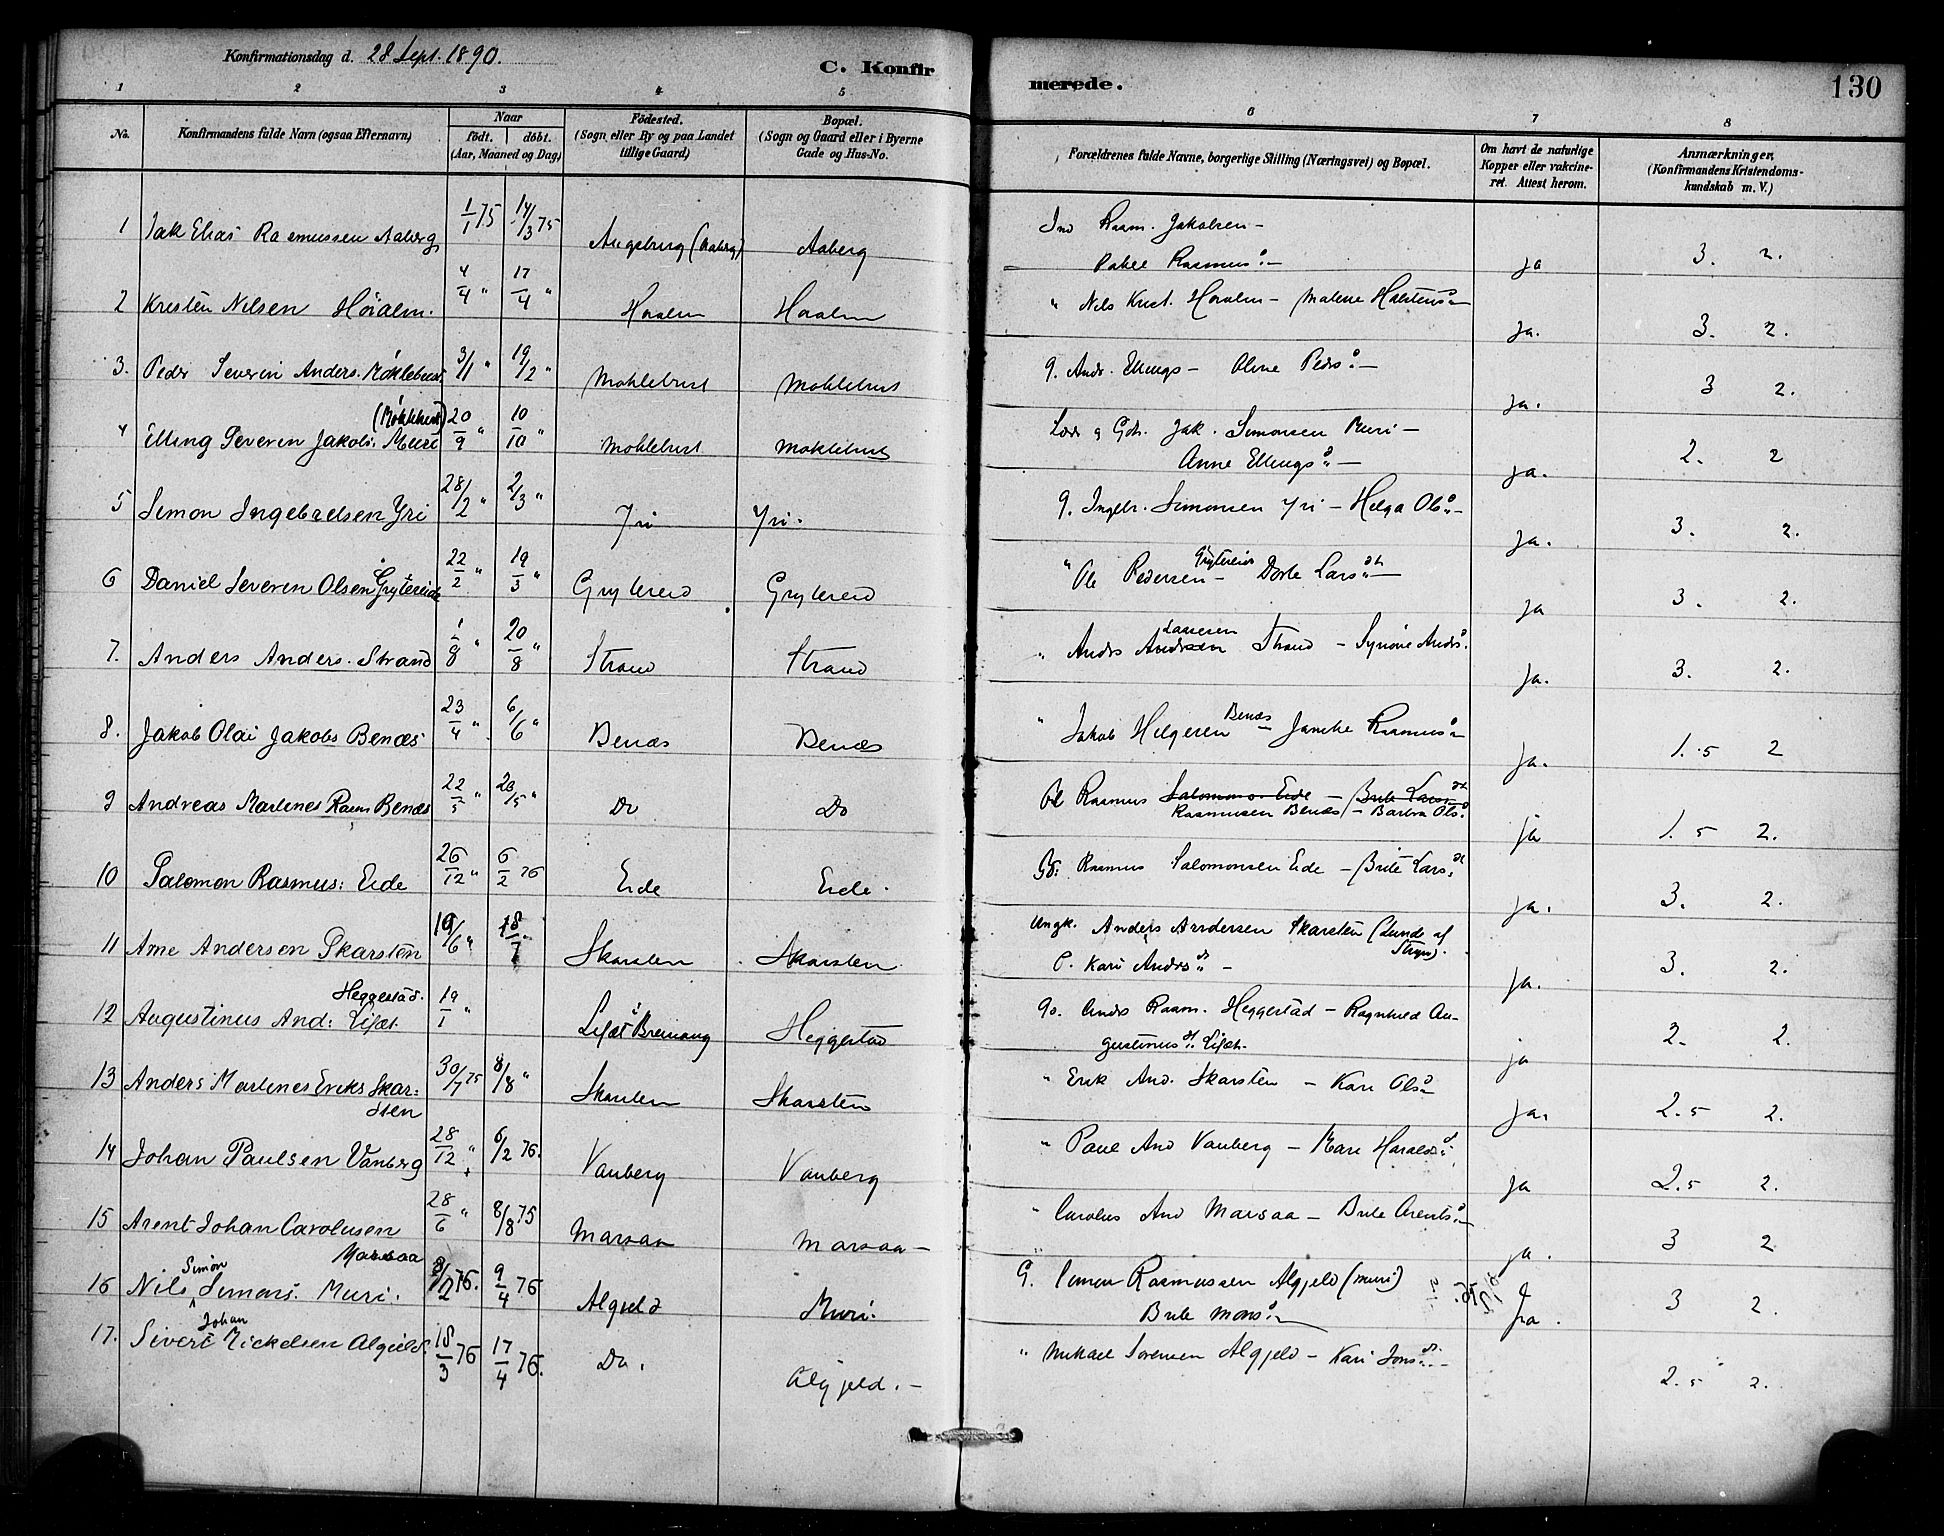 Konfirmationsdag d. 28 Sept. 1890.
C. Konfirmerede.
130
1 2 3 4 5 6 7 8
No.
Konfirmandens fulde Navn (ogsaa Efternavn)
Naar
födt. döbt.
(Aar, Maaned og Dag)
Födested.
(Sogn eller By og paa Landet
tillige Gaard)
Bopæl.
(Sogn og Gaard eller i Byerne
Gade og Hus-No.
Forældrenes fulde Navne, borgerlige Stilling (Næringsvei) og Bopæl.
Om havt de naturlige
Kopper eller vakcine-
ret. Attest herom.
Anmærkninger.
(Konfirmandens Kristendoms-
kundskab m. V.)
1 Jak Elias Rasmussen Aaberg 1/1 75 14/3 75 Augsburg (Aaberg) Aaberg Ind Rasm. Jakobsen - ja 3. 2.
Rasmusd -
2 Kristen Nilsen Hjralm. 4/4 " 17/4 " " Nils Krist. - Malene ja. 3. 2.
3. Peder Severin Anders. Møklebust 3/1 " 19/2 " Moklebust Moklebust G. Andr. Ellings - Oline Pedsd - ja. 3 2.
(Møklebust)
4 Elling Severin Jakobs. Muri 20/9 " 10/10 " Moklebust Moklebust Jak. Simonsen Muri - ja. 2. 2
Anne Ellingsd -
5 Simon Ingebrelsen Yri 28/2 " 2/3 " Yri Yri. G. Ingebr. Simonsen Yri - Helga Olsd - ja. 3. 2.
6 Daniel Severin Olsen Grytereide 22/2 " 19/3 " Grytereid Grytereid " Ole Pedersen Grytereid - Dorte Larsdtr - ja 3. 2.
7. Anders Anders. Strand 1/8 " 20/8 " Strand Strand " Anders Andersen Larsen Strand - Synøve Andrsd. ja. 3. 2.
8. Jakob Olai Jakobs Benæs 23/4 " 6/6 " Benæs Benæs " Jakob Helgesen Benæs - Rasmusd ja. 1.5 2
9 Andreas Martines Rasm Benæs 22/5 " 23/5 " Do Do Rasmus Salomons Eide - Brite Larsdtr ja 1.5 2.
Rasmussen Benæs - Barbra Olsd.
10 Salomon Rasmus: Eide 26/12 " 6/2 76 Eide Eide. Rasmus Salomonsen Eide - Brite Larsdt ja. 3. 2.
11 Arne Andersen Skarsten 19/6 " 18/7 " Skarsten Skarsten Ungk. Anders Andersen Skarsten (Lunde af Stryn). ja. 3. 2.
P. Kari Andrsd -
Heggestad.
12 Augustinus And: 19/1 " Heggestad Anders Rasm. Heggestad - Ragnhild Au- ja 2. 2.
gustinusd.
13 Anders Martines Eriks Skar= 30/7 75 8/8 " Skarsten Skarsten " Erik And. Skarsten - Kari Olsd ja. 2.5 2.
sten
14 Johan Paulsen Vanberg 28/12 " 6/2 76. Vanberg Vanberg " Paul And Vanberg - Mari Haraldsd. ja 2.5 2.
15 Arent Johan Carolusen 28/6 " 8/8 75 Marsaa Marsaa - " Carolus And Marsaa - Brite Arentsd - ja. 3 2
Marsaa
16 Nils Simon Simons. Muri. 8/2 76. 9/4 76 Algjeld Muri. G. Simon Rasmussen Algjeld (Muri) Ja. 3 2.
Brite Monsd
17. Sivert Johan Mickelsen Algjeld. 18/3 76 17/4 76. Do. Algjeld. - " Mikael Sorensen Algjeld - Kari Jonsd. - 2.5 2.